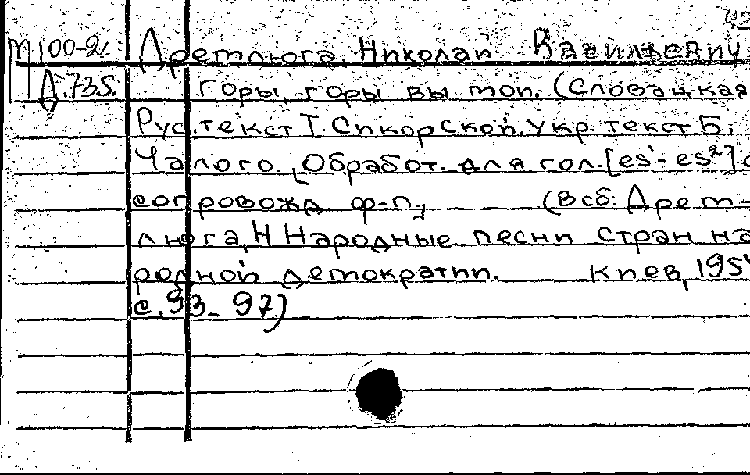 М100-2
Дремлюга, Николай Васильевич
Д.735. Горы, горы вы мои. (Словацкая
Рус. текст Т. Сикорской. Укр. текст Б.
Чалого. Обработ. для гол. [es¹-es²] с
сопровожд ф-п.; (В сб: Дрем-
люга, Н Народные песни стран на
родной демократии. Киев, 195
с. 93-97)